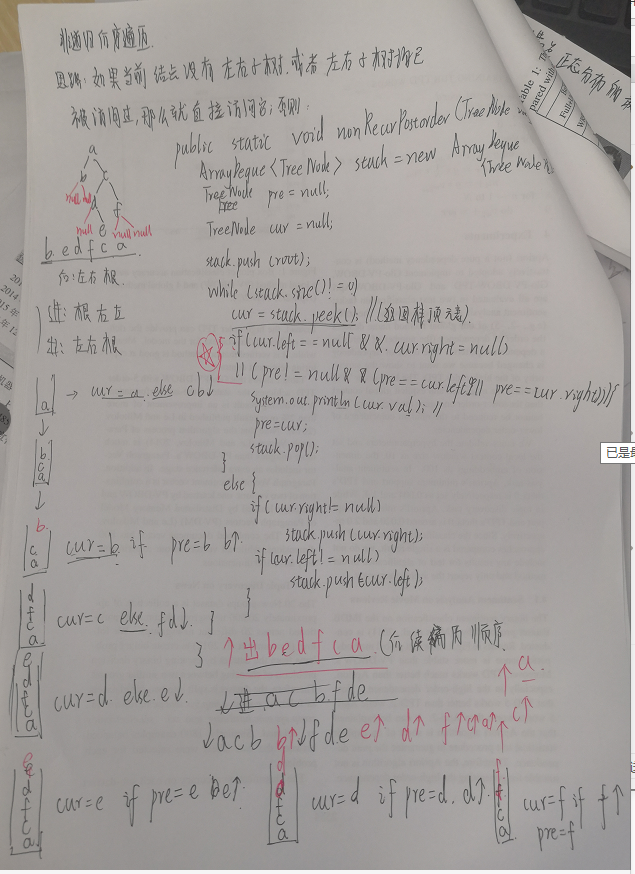 非递归后序遍历.
思路:如果当前结点没有左右子树,或者左右子树都已
被访问过,那么就直接访问它;否则:
Table 1: The
pared with
正态分布的
public static void nonRecurPostorder(TreeNode
ArrayDeque<TreeNode> stack = new ArrayDeque
<TreeNode>
TreeNode pre = null;
Tree
TreeNode cur = null;
a
b c
null null d f
null e null null
b e d f c a
后:左右根.
进:根右左
出:左右根
stack.push(root);
while (stack.size()!=0)
cur = stack.peek(); //(返回栈顶元素).
if(cur.left==null && cur.right=null)
|| (pre!=null && (pre==cur.left || pre==cur.right))){
system.out.println(cur.val); //
pre=cur;
stack.pop();
}
else {
if(cur.right!=null)
stack.push(cur.right);
if(cur.left!=null)
stack.push(cur.left);
}
}
}
a → cur=a. else cb↓
↓
b
c
a
↓
b.
c
a
cur=b. if pre=b b↑
d
f
c
a
cur=c else. fd↓.
e
d
f
c
a
cur=d. else. e↓.
↑出 b e d f c a.(后续遍历顺序
↓进.a c b f d e
↓a c b b↑ ↓f d e e↑ d↑ f↑c↑a↑
c↑
↑ a.
e
d
f
c
a
cur=e if pre=e e↑.
d
d
f
c
a
cur=d if pre=d. d↑.
f
f
c
a
cur=f if f↑
pre=f
已是最